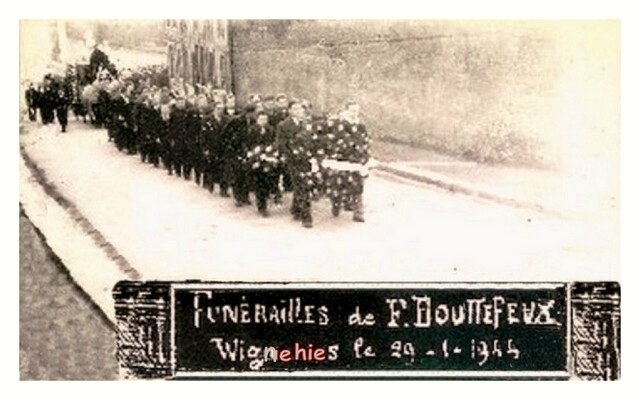 FUNÉRAILLES de F. BOUTTEFEUX
Wignehies le 29-1-1944